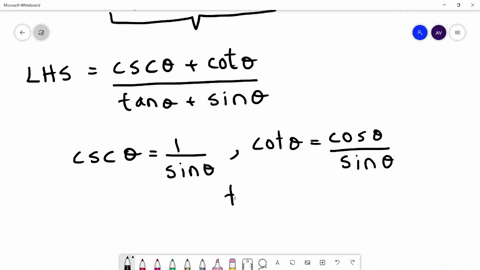 Microsoft Whiteboard
AV
LHS = cscθ + cotθ / tanθ + sinθ
csc θ = 1 / sinθ , cotθ = cosθ / sinθ
t